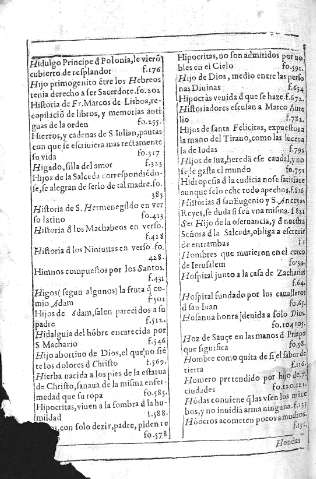 Hidalgo Principe d Polonia, le vierõ
cubierto de resplandor f.176
Hijo primogenito ẽtre los Hebreos
tenia derecho a ser Sacerdote. fo.202
Historia de Fr. Marcos de Lisboa, re-
copilació de libros, y memorias anti-
guas de la orden fo.255.
Hiertos, y cadenas de S. Iulian, pautas
con que se escriuiera mas rectamente
su vida fo.317
Higado, silla del amor f.323
Hijos de la Salceda correspondiẽdo-
se, se alegran de serlo de tal madre. fo.
383
Historia de S. Hermenegildo en ver
so latino fo.413
Historia d los Machabeos en verso.
f.428
Historia d los Niniuitas en verso fo.
428.
Himnos compuestos por los Santos.
f.431
Higos (segun algunos) la fruta q̃ co-
mio Adam f.501
Hijos de Adam, salen parecidos a su
padre f.512.
Hidalguia del hõbre encarecida por
S Machario f.546
Hijo abortiuo de Dios, el que no siẽ
te los dolores d Christo f.569.
Hierba nacida a los pies de la estatua
de Christo, sanaua de la misma enfer-
medad que su ropa fo.585.
Hipocritas, viuen a la sombra d la hu-
mildad f.588.
con solo dezir, padre, piden
fo.578
Hipocritas, no son admitidos por no
bles en el Cielo fo.592.
Hijo de Dios, medio entre las perso
nas Diuinas f.634
Hipocrãs veuida que se haze f.672.
Historiadores escusan a Marco Aure
lio f.782.
Hijos de santa Felicitas, expuestos a
la mano del Tirano, como las lucer
la de Iudas f.795
Hijos de luz, heredã esse caudal, y no
se le gasta el mundo
Hidropesia d la cudicia no se satisface
aunque solo eche todo apechos, f.816
Historias d san Eugenio y S.
Reyes, se duda si sea vna misma. f.831
Señora d la Salceda, obliga a escreuir
de entrambas
Hombres que murieron en el cerco
de Ierusalem
Hospital junto a la casa de Zacharias
f.64.
Hospital fundado por los caualleros
d san Iuan
Hosanna honra deuida a solo Dios.
fo.104.105.
Hoz de Sauçe en las manos d Priapo
que significa
Hombre como quita de si el sabor de
tierra
Homero pretendido por hijo de
ciudades fo.120.121.
Hõdas conuiene q̃ las vsen los mize
bos, y no inuidia arma ninguna. f.133
Honores acometen pocos a muchos.
Hondas